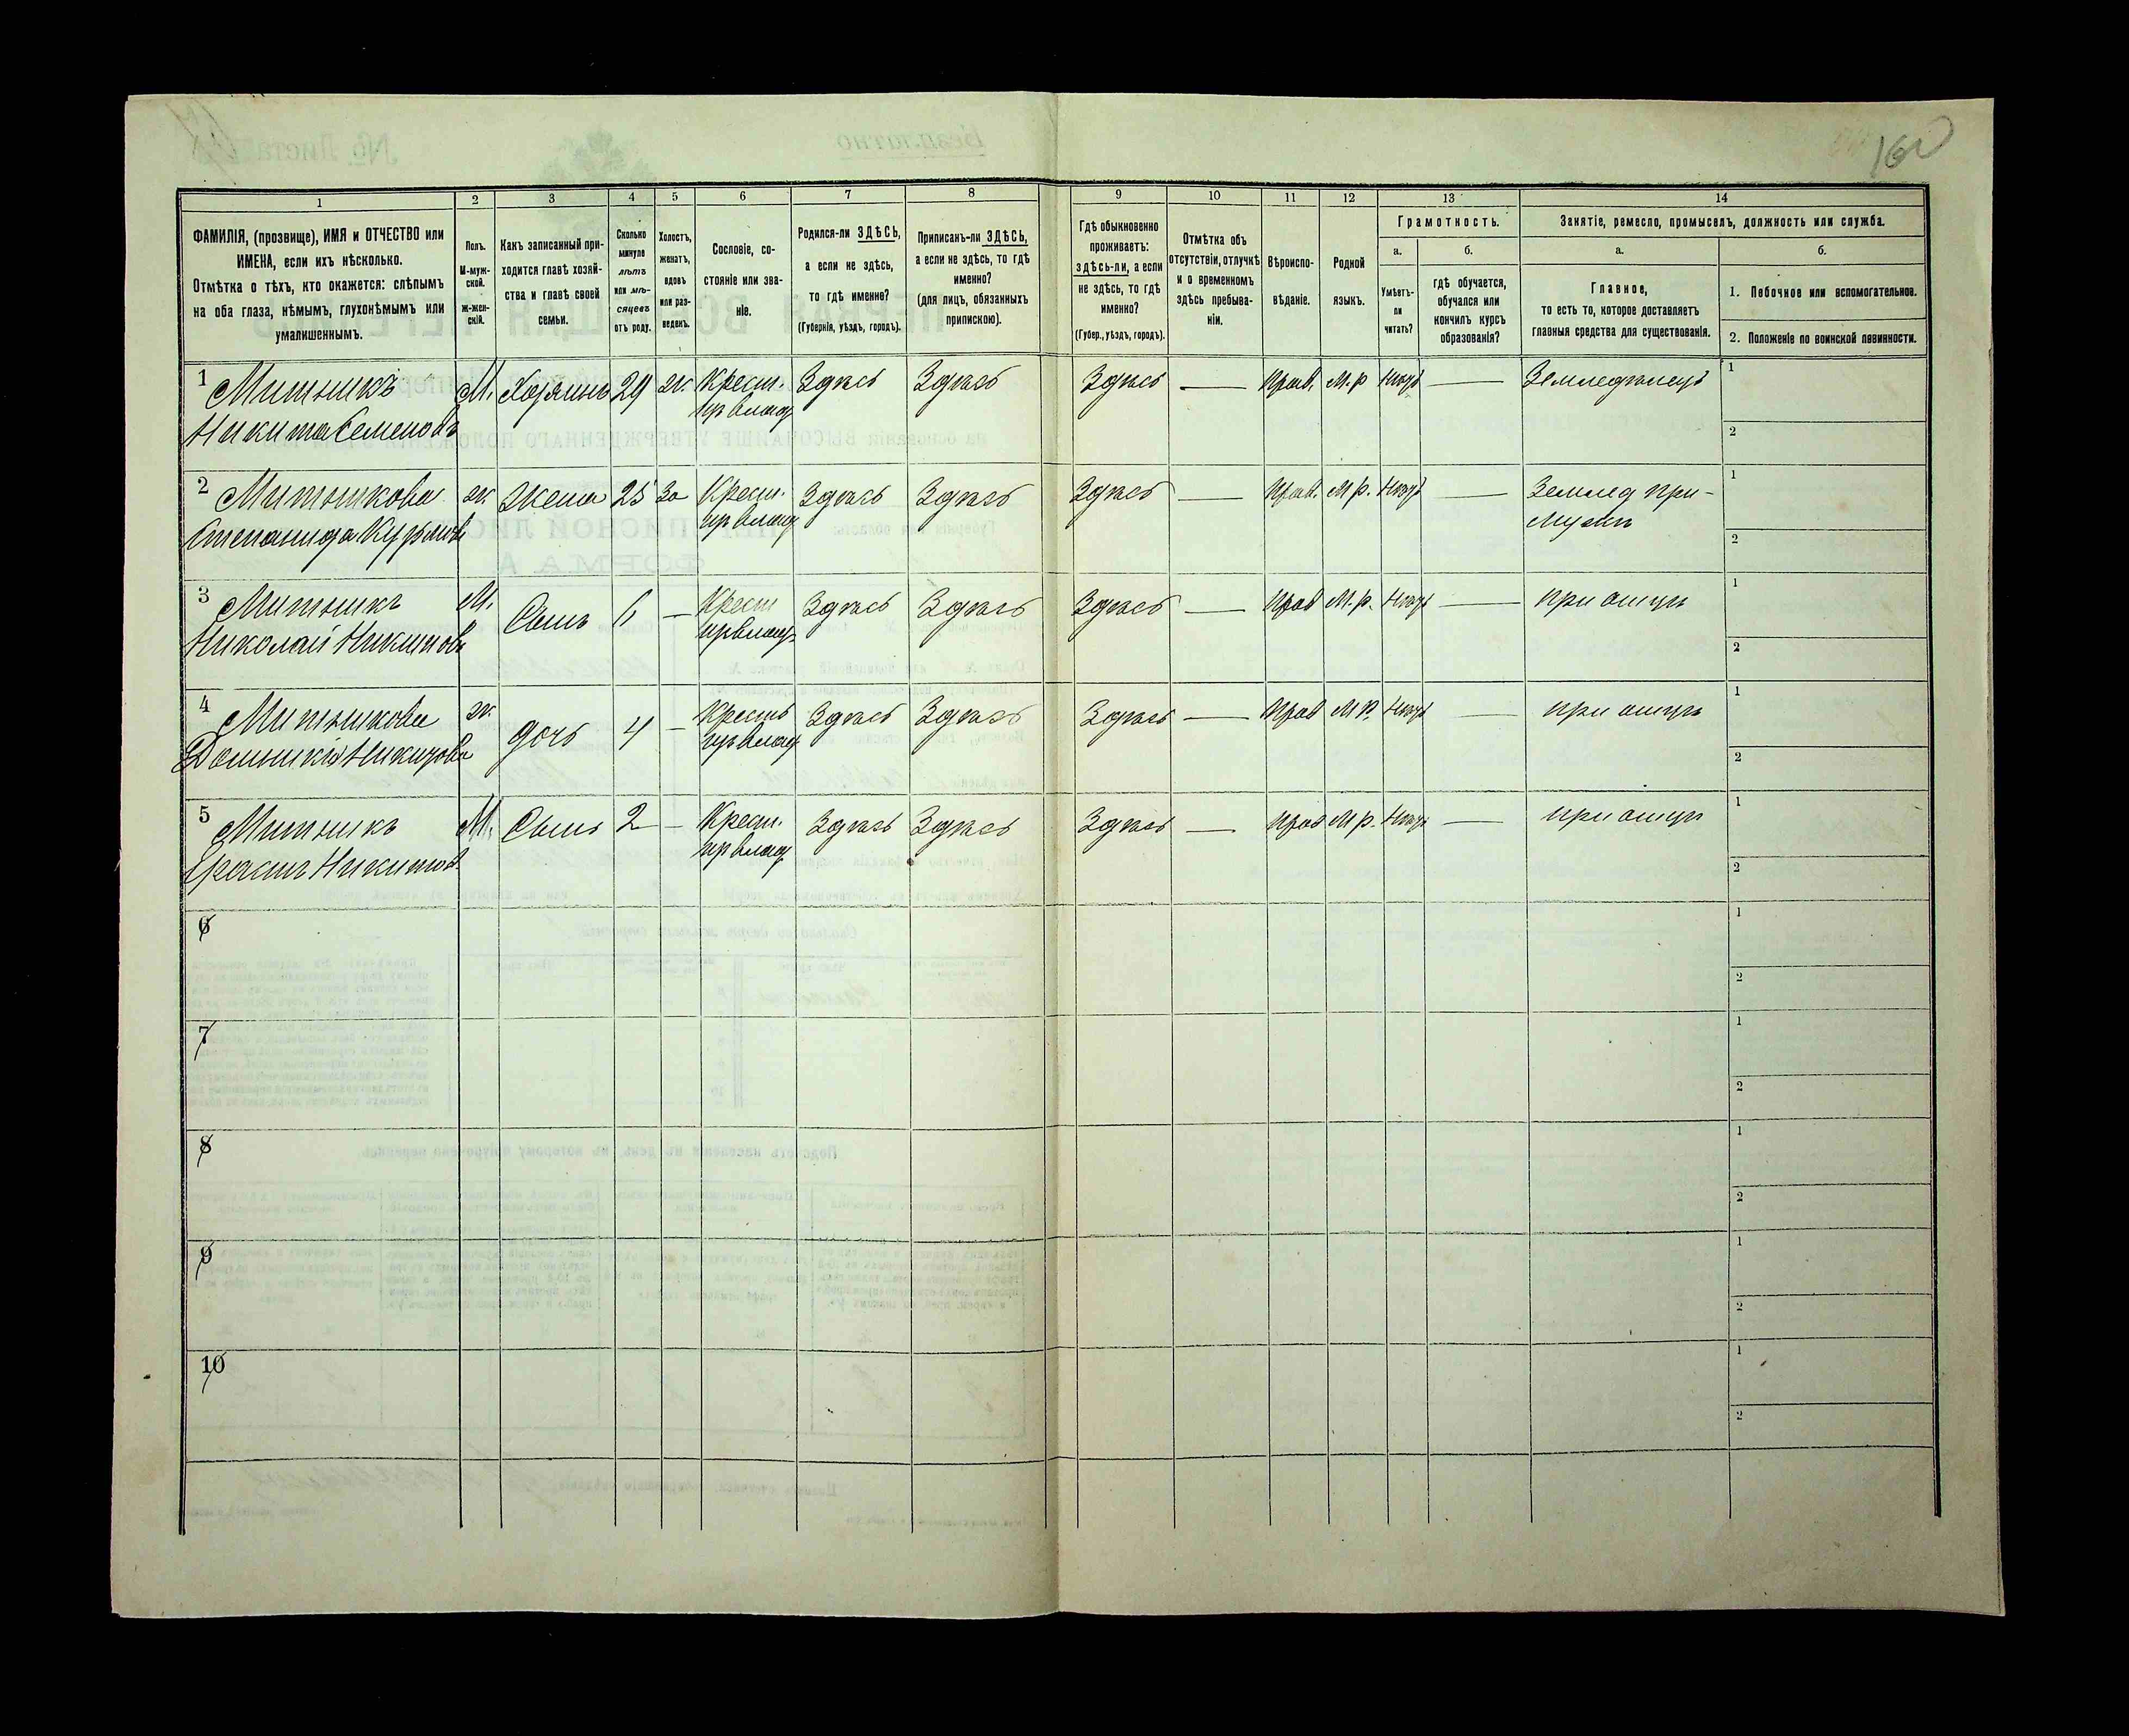 160
1 2 3 4 5 6 7 8 9 10 11 12 13 14
ФАМИЛІЯ, (прозвище), ИМЯ и ОТЧЕСТВО или
ИМЕНА, если ихъ нѣсколько.
Отмѣтка о тѣхъ, кто окажется: слѣпымъ
на оба глаза, нѣмымъ, глухонѣмымъ или
умалишеннымъ.
Полъ.
М-муж-
ской.
Ж-жен-
скій.
Какъ записанный при-
ходится главѣ хозяй-
ства и главѣ своей
семьи.
Сколько
минуло
лѣтъ
или мѣ-
сяцевъ
отъ роду.
Холостъ,
женатъ,
вдовъ
или раз-
веденъ.
Сословіе, со-
стояніе или зва-
ніе.
Родился-ли ЗДѢСЬ,
а если не здѣсь,
то гдѣ именно?
(Губернія, уѣздъ, городъ).
Приписанъ-ли ЗДѢСЬ,
а если не здѣсь, то гдѣ
именно?
(для лицъ, обязанныхъ
припискою).
Гдѣ обыкновенно
проживаетъ:
здѣсь-ли, а если
не здѣсь, то гдѣ
именно?
(Губер., уѣздъ, городъ).
Отмѣтка объ
отсутствіи, отлучкѣ
и о временномъ
здѣсь пребыва-
ніи.
Вѣроиспо-
вѣданіе.
Родной
языкъ.
Грамотность.
а.
Умѣетъ-
ли
читать?
б.
гдѣ обучается,
обучался или
кончилъ курсъ
образованія?
Занятіе, ремесло, промыселъ, должность или служба.
а.
Главное,
то есть то, которое доставляетъ
главныя средства для существованія.
б.
1. Побочное или вспомогательное.
2. Положеніе по воинской повинности.
1 Митникъ М. Хозяинъ 29 ж Крест. Здѣсь Здѣсь Здѣсь — Прав. М.р Нѣтъ — Земледѣлецъ 1
Никита Семеновъ
2
2 Митникова ж Жена 25 За Крест. Здѣсь Здѣсь Здѣсь — Прав. М р. Нѣтъ — Землед при- 1
Степанида мужѣ 2
3 Митникъ М. Сынъ 6 — Крест Здѣсь Здѣсь Здѣсь — Прав М. р. Нѣтъ — при отцѣ 1
Николай Никитовъ
2
4 Митникова ж дочь 4 — Крест Здѣсь Здѣсь Здѣсь — Прав М р. Нѣтъ — при отцѣ 1
Домникія Никитова
2
5 Митникъ М. Сынъ 2 — Крест. Здѣсь Здѣсь Здѣсь — Прав М р. Нѣтъ — при отцѣ 1
Никитов
2
6 1
2
7 1
2
8 1
2
9 1
2
10 1
2